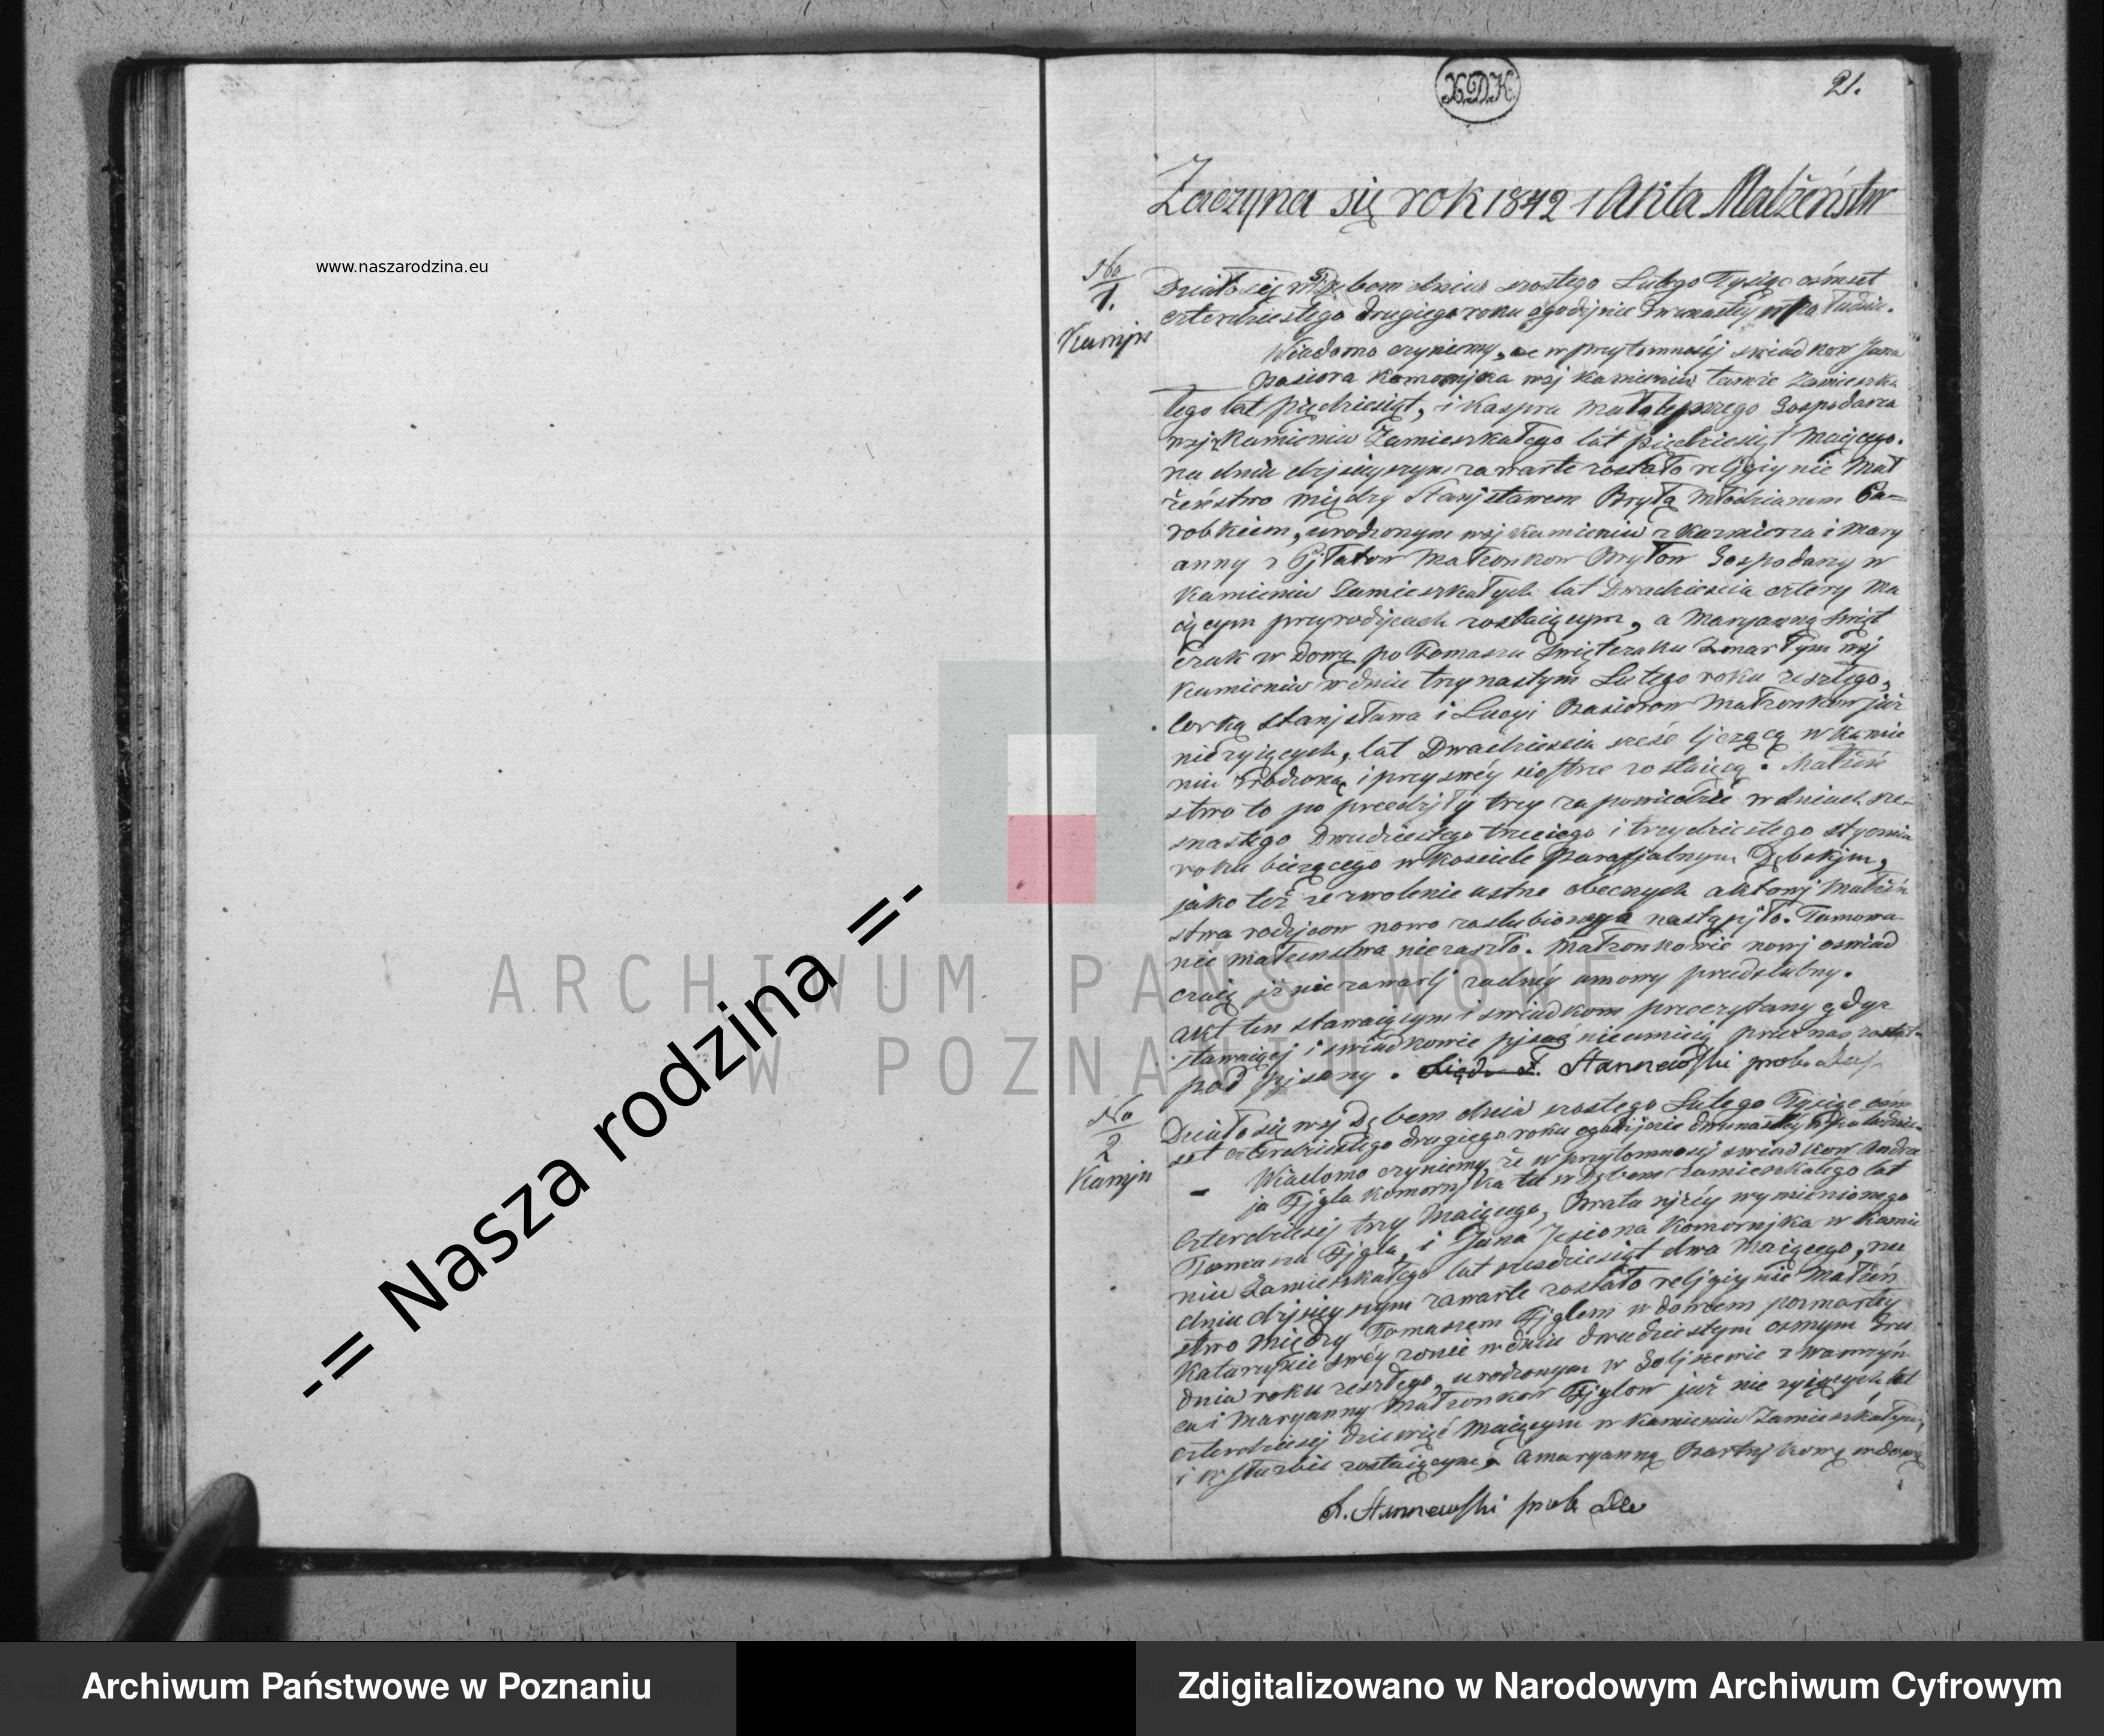 www.naszarodzina.eu
-= Nasza rodzina =-
X.D.K.
21.
Zaczyna się rok 1842 Akta Małżeństw
No
1.
Kamjn
Działo się w Dębem dnia szostego Lutego Tysiąc ośmset
czterdziestego drugiego roku o godzinie dwunasty w Południe.
Wiadomo czyniemy, że w przytomności swiadkow Jana
Basiora Komornjka wsj Kamieniu tamże Zamieszka
łego lat pięćdziesiąt, i Kaspra Gospodarza
wsj Kamieniu Zamieszkałego lat pięćdziesiąt Maiącego.
na dniu dzjsieyszym zawarte zostało religiynie Mał
żeństwo między Stanjsławem Bryłą Młodzianem Pa=
robkiem, urodzonym wsj Kamieniu z Kazmierza i Mary
anny z Małżonkow Bryłow Gospodarzy w
Kamieniu Zamieszkałych lat Dwadzieścia cztery Ma
iącym przy rodzjcach zostaiącym, a Maryanną Swięt
czak w dową po Tomaszu Swięteraku Zmarłym wsj
Kamieniu w dniu trzynastym Lutego roku zeszłego,
Corką Stanjsława i Lucyi Basiorow Małżonkow już
nieżyiących, lat Dwadzieścia sześć ljczącą w Kamie
niu Urodzoną i przy swéy siostrze zostaiącą. Małżeń
stwo to po przedzjły trzy zapowiedzie w dniach sze-
snastego Dwudziestego trzeciego i trzydziestego stycznia
roku bieżącego w kosciele Parafjalnym Dębskjm,
jako też zezwolenie ustne obecnych aktowj Małżeń
stwa rodzjcow nowo zaslubionego nastąpjło. Tamowa-
nie małżenstwa niezaszło. Małżonkowie nowj oswiad
czaią jż nie zawarlj żadnéy umowy przedslubny.
Akt ten stawaiącym i swiadkom przeczytany gdyż
stawaiącj i swiadkowie pjsać nieumieią przez nas został
pod pjsany. F. Stannewski prob.
No
2
Kamjn
Działo się wsj Dębem dnia szostego Lutego Tysiąc ośm
set czterdziestego drugiego roku o godzjnie dwunasty w Południe.
Wiadomo czyniemy, że w przytomnosci swiadkow Andrze
ja Fjgla Komornjka tu w Dębem Zamieszkałego lat
Czterdziescj trzy Maiącego, Brata njżéy wymienionego
Tomasza Fjgla, i Jana Jesiona Komornjka w Kamie
niu Zamieszkałego lat szesdziesiąt dwa Maiącego, na
dniu dzjsieyszym zawarte zostało religiynie Małżeń
stwo Między Tomaszem Fjglem w dowcem pozmarłéy
Katarzynie swéy żonie w dniu dwudziestym osmym Gru
dnia roku zeszłego, urodzonym w Goljszewie z Wawrzyń
ca i Maryanny Małżonkow Fjglow już nie żyiących lat
czterdziescj dziewięć Maiącym w Kamieniu Zamieszkałym,
i w służbie zostaiącym, a Maryanną Bartnjkową wdową
F. Stannewski prob.
ARCHIWUM PAŃSTWOWE
W POZNANIU
Archiwum Państwowe w Poznaniu
Zdigitalizowano w Narodowym Archiwum Cyfrowym